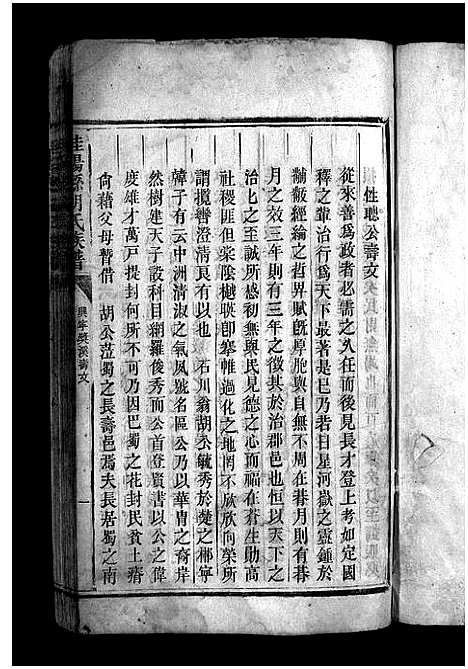 性聰公壽文
從來善爲政者必需之久任而後見長才登上考如定國
釋之輩治行爲天下最著是巳乃若日星河嶽之靈鍾於
黼黻經綸之哲界賦旣厚胞與自無不周在朞月則有朞
月之效三年則有三年之徵其於治郡邑也恒以天下之
治化之至誠所感初無與民見德之心而福在羣生勛高
社稷匪但棠陰樾聯卽搴帷過化之地罔不欣欣向榮所
謂攬轡澄清良有以也 石川翁胡公毓秀於楚之郴寧
韓子有云中洲清淑之氣夙號名區公乃以華冑之裔岸
然樹建天子設科目網羅俊秀而公首登賢書以公之偉
度雄才萬戶提封何所不可乃因巴蜀之花封民貧土瘠
尙藉父母暫借 胡公蒞蜀之長壽邑焉夫長居蜀之南
桂陽縣胡氏族譜
興寧英溪壽文
一